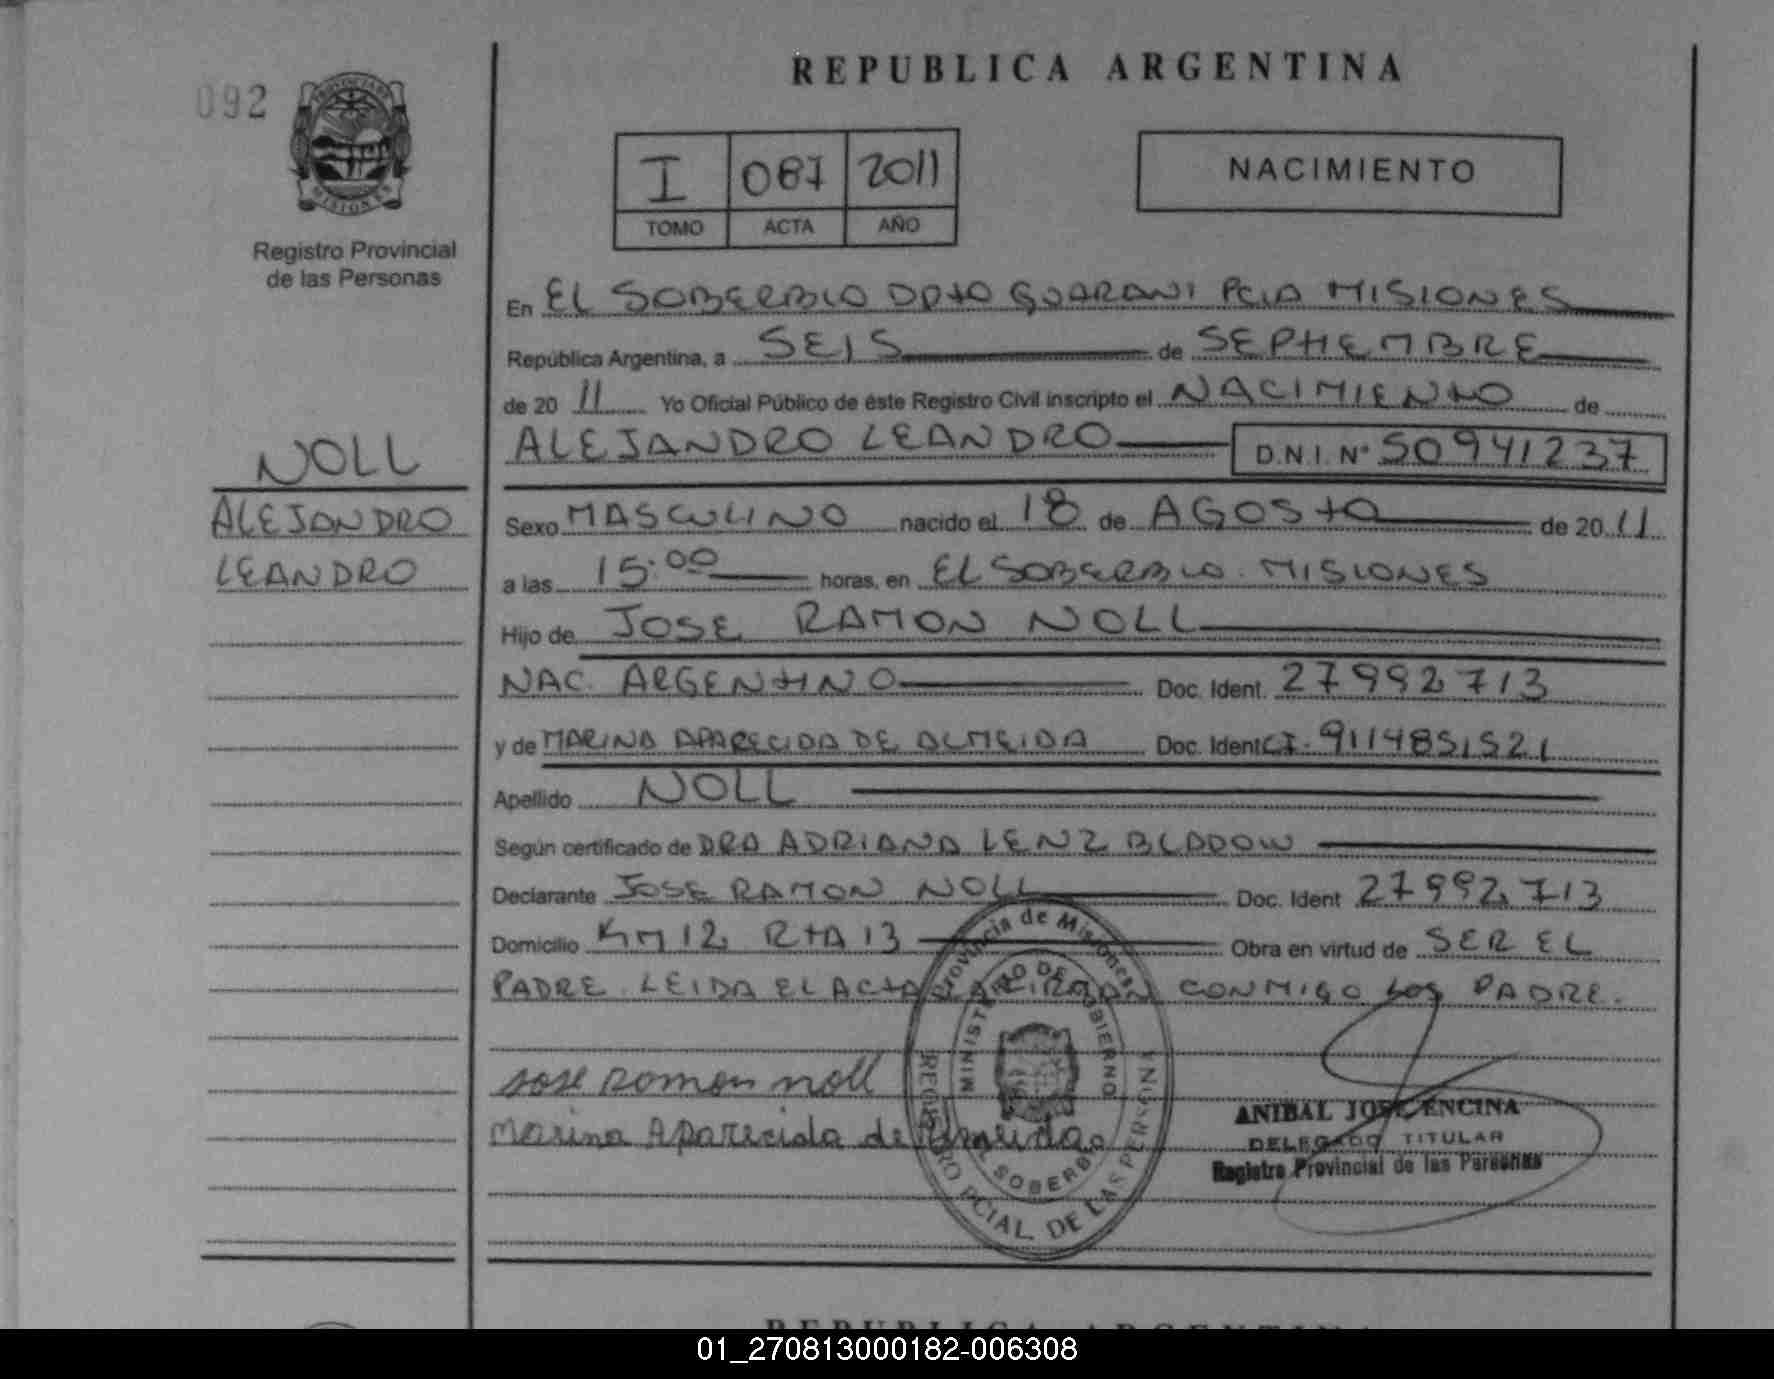 REPUBLICA ARGENTINA
092
PROVINCIA DE MISIONES
Registro Provincial
de las Personas
I 087 2011
TOMO ACTA AÑO
NACIMIENTO
NOLL
ALEJANDRO
LEANDRO
En EL SOBERBIO DPTO GUARANI PCIA MISIONES
República Argentina, a SEIS de SEPTIEMBRE
de 20 11 Yo Oficial Público de éste Registro Civil inscripto el NACIMIENTO de
ALEJANDRO LEANDRO D.N.I. Nº 50941237
Sexo MASCULINO nacido el 18 de AGOSTO de 20 11
a las 15:00 horas, en EL SOBERBIO. MISIONES
Hijo de JOSE RAMON NOLL
NAC. ARGENTINO Doc. Ident. 27992713
y de MARINA APARECIDA DE ALMEIDA Doc. Ident CI. 9114851521
Apellido NOLL
Según certificado de DRA ADRIANA LENZ BLADOW
Declarante JOSE RAMON NOLL Doc. Ident 27992713
Domicilio KM 12 RTA 13 Obra en virtud de SER EL
PADRE. LEIDA EL ACTA LA FIRMAN CONMIGO LOS PADRE.
jose ramon noll
Marina Aparecida de Almeida
Provincia de Misiones
MINISTERIO DE GOBIERNO
EL SOBERBIO
REGISTRO PCIAL. DE LAS PERSONAS
ANIBAL JOSE ENCINA
DELEGADO TITULAR
Registro Provincial de las Personas
REPUBLICA ARGENTINA
01_270813000182-006308